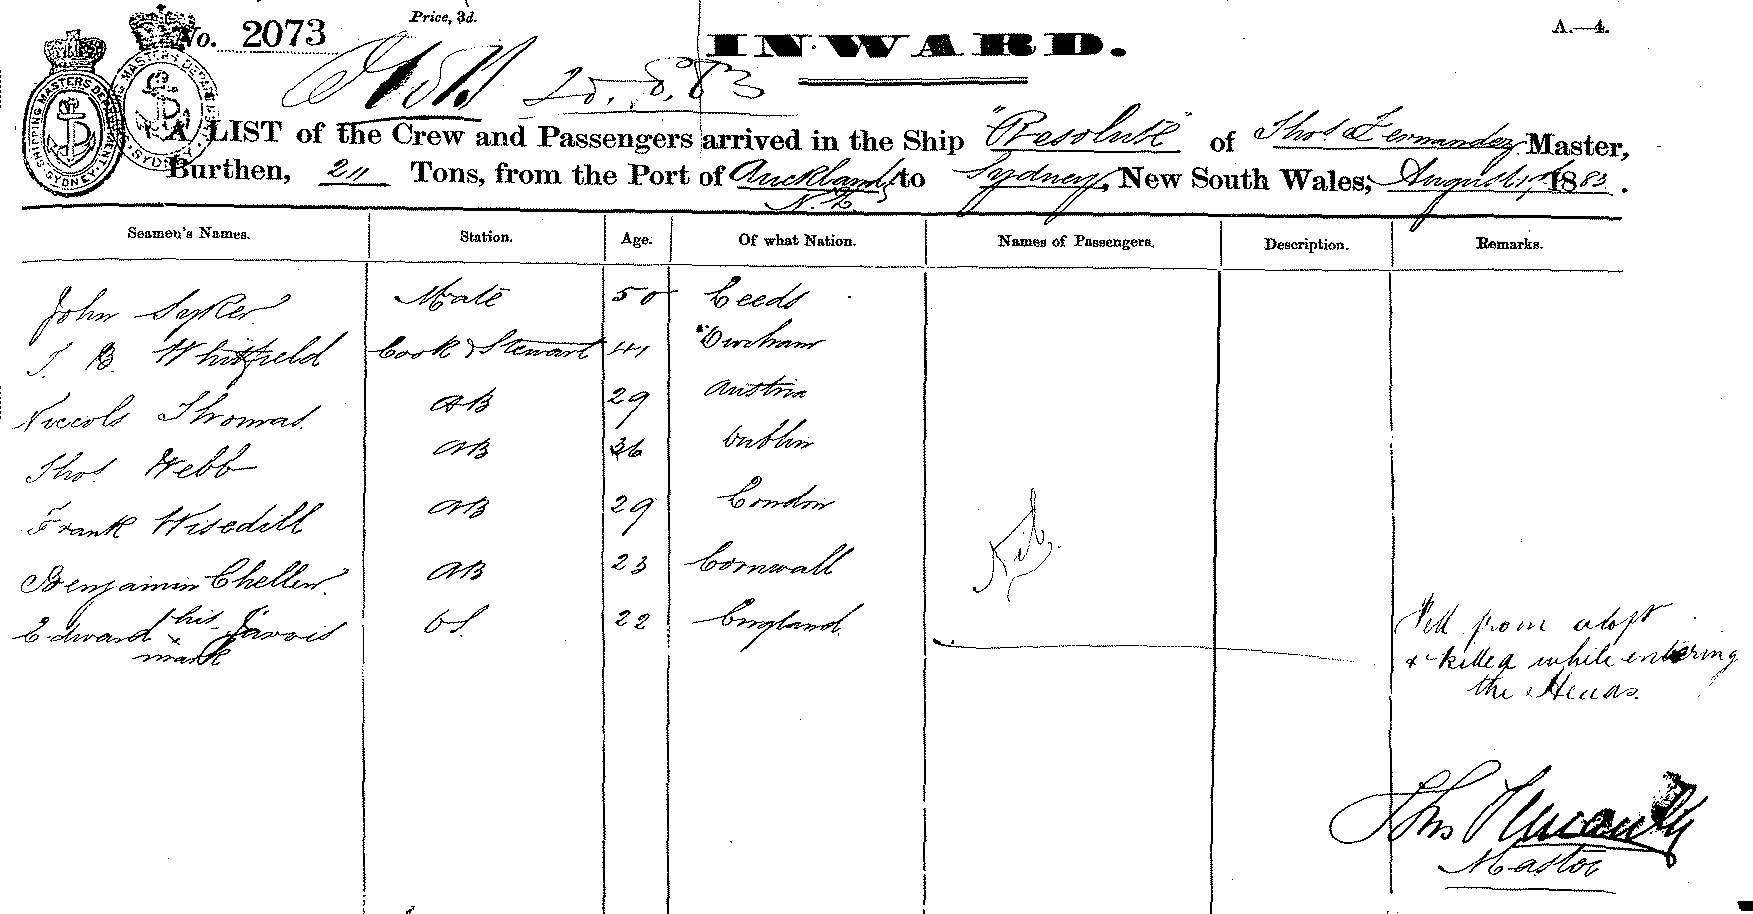 No. 2073
Price, 3d.
INWARD.
A.—4.
SHIPPING MASTERS DEPARTMENT SYDNEY
25.8.83
A LIST of the Crew and Passengers arrived in the Ship "Resolute" of Thos Fernandez Master,
Burthen, 211 Tons, from the Port of Auckland N.Z. to Sydney, New South Wales, August 1883.
Seamen's Names. Station. Age. Of what Nation. Names of Passengers. Description. Remarks.
John Syker Mate 50 Leeds
J. B. Whitfield Cook & Stewart 41 Durham
Niccols Thomas AB 29 Austria
Thos Webb AB 36 Dublin
Frank Wisedill AB 29 London
Benjamin Chellew AB 23 Cornwall
Edward his x mark Jarvis OS 22 England Fell from aloft
& killed while entering
the Heads.
Nil
Thos Fernandez
Master